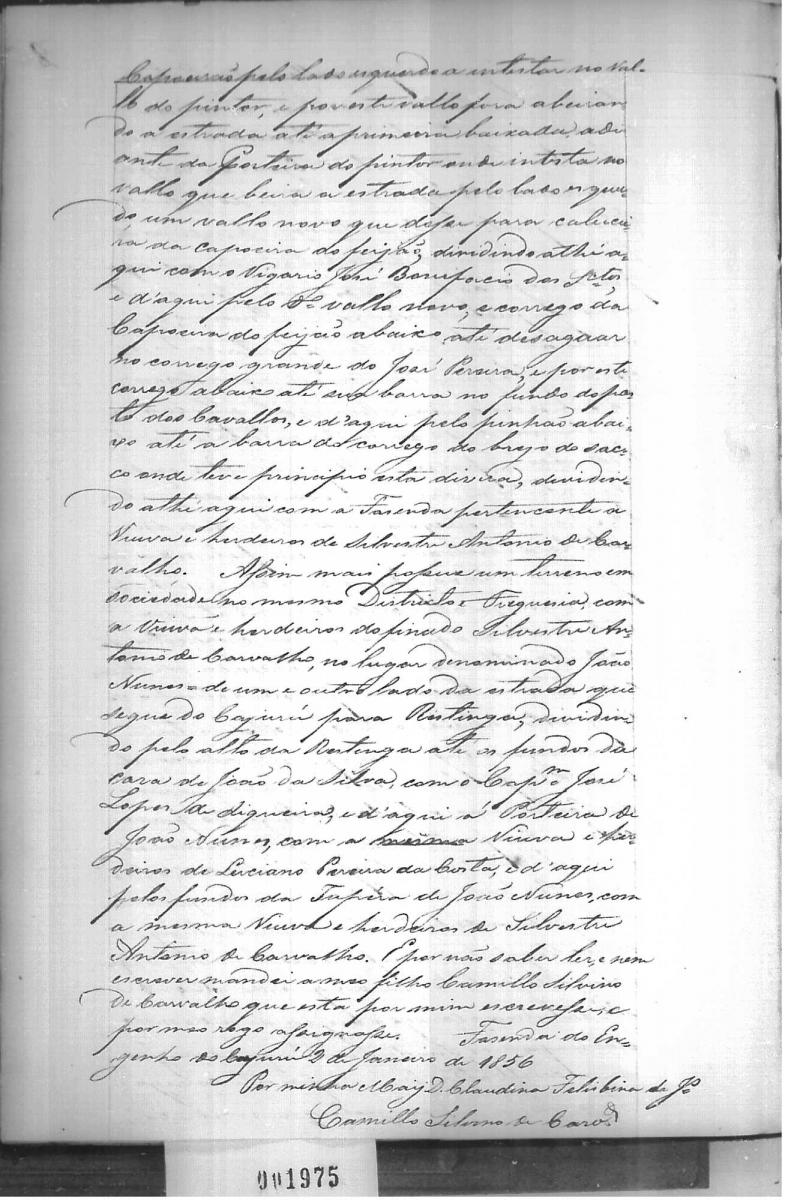 Capoeirão pelo lado esquerdo a intestar no Val-
lo do pintor, e por este vallo fora abeiran
do a estrada até a primeira baixada, adi
ante da Porteira do pintor onde intesta no
vallo que beira a estrada pelo lado esquer-
do, um vallo novo que desse para cabecei
ra da capoeira do feijão, dividindo athé a-
qui com o Vigario José Bonifacio dos Sctos,
e d'aqui pelo do vallo novo, e corrego da
Capoeira do feijão abaixo até desagoar
no corrego grande do José Pereira, e por este
corrego abaixo até sua barra no fundo do pas
to dos Cavallos, e d'aqui pelo pinhão abai-
xo até a barra do corrego do brejo do sac-
co onde teve principio esta diviza, dividin-
do athé aqui com a Fazenda pertencente a
Viuva e herdeiros de Silvestre Antonio de Car-
valho. Assim mais possue um terreno em
sociedade no mesmo Districto e Freguesia, com
a Viuva e herdeiros do finado Silvestre An-
tonio de Carvalho, no lugar denominado João
Nunes = de um e outro lado da estrada que
segue do Cajurú para Restinga, dividin
do pelo alto da Restinga até os fundos da
caza de João da Silva, com o Capm José
Lopes de Siqueira, e d'aqui á Porteira de
João Nunes, com a Viuva e her
deiros de Luciano Pereira da Costa, e d'aqui
pelos fundos da Tapéra de João Nunes, com
a mesma Viuva e herdeiros de Silvestre
Antonio de Carvalho. E por não saber ler, e nem
escrever mandei a meo filho Camillo Silvino
de Carvalho que esta por mim escrevesse, e
por meo rogo assignasse. Fazenda do En-
genho do Cajurú 2 de Janeiro de 1856
Por minha May D. Claudina Felisbina de Jo
Camillo Silvino de Carvo
001975